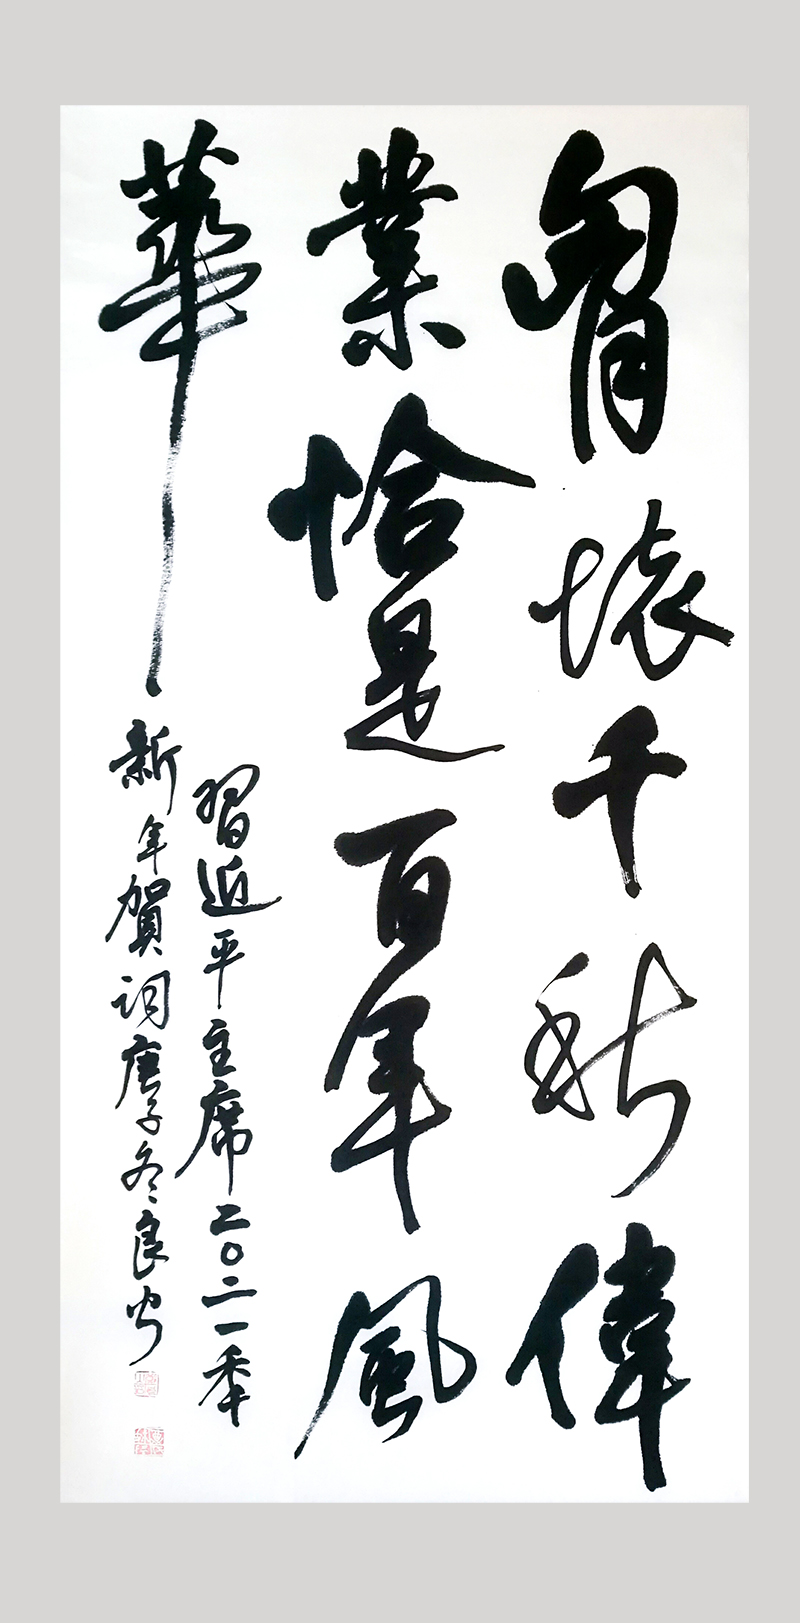 胷懷千秋偉
業恰是百年風
華
習近平主席二〇二一秊
新年賀詞庚子冬良